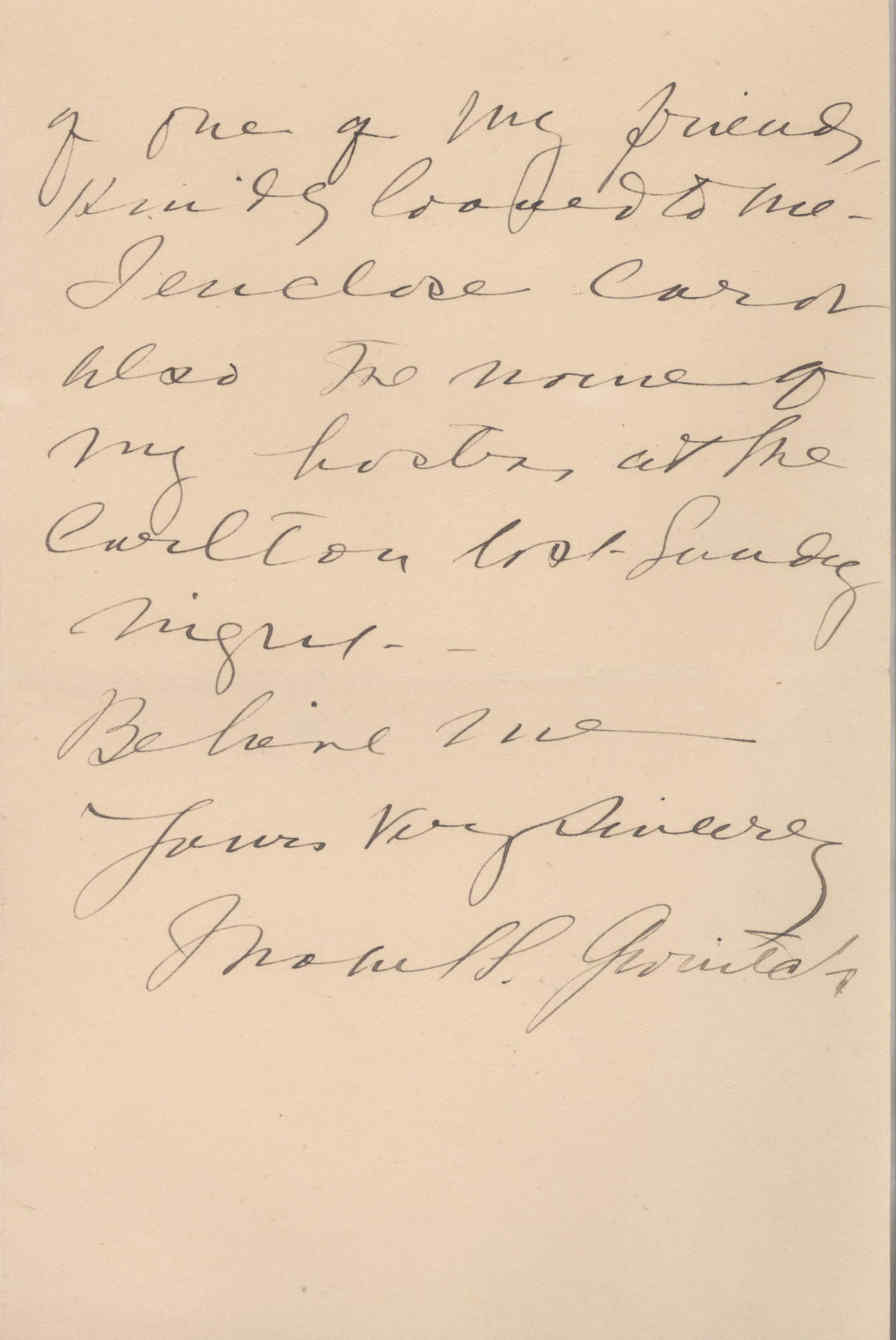 of one of my friends,
Kindly loaned to me -
I enclose Card
also the name of
my hostess, at the
Carlton last Sunday
night - -
Believe me
Yours Very Sincerely